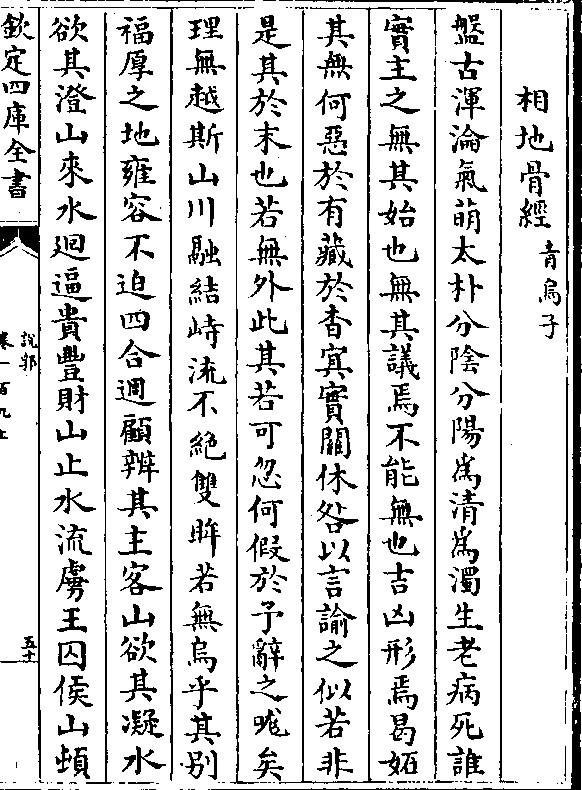 相地骨經 青烏子
盤古渾淪氣萌太朴分陰分陽為清為濁生老病死誰
實主之無其始也無其議焉不能無也吉凶形焉曷妬
其無何惡於有藏於杳冥實關休咎以言諭之似若非
是其於末也若無外此其若可忽何假於予辭之咙矣
理無越斯山川融結峙流不絕雙眸若無烏乎其別
福厚之地雍容不迫四合週顧辨其主客山欲其凝水
欲其澄山來水迴逼貴豐財山止水流虜王囚侯山頓
欽定四庫全書
說郛
卷一百九上
五十